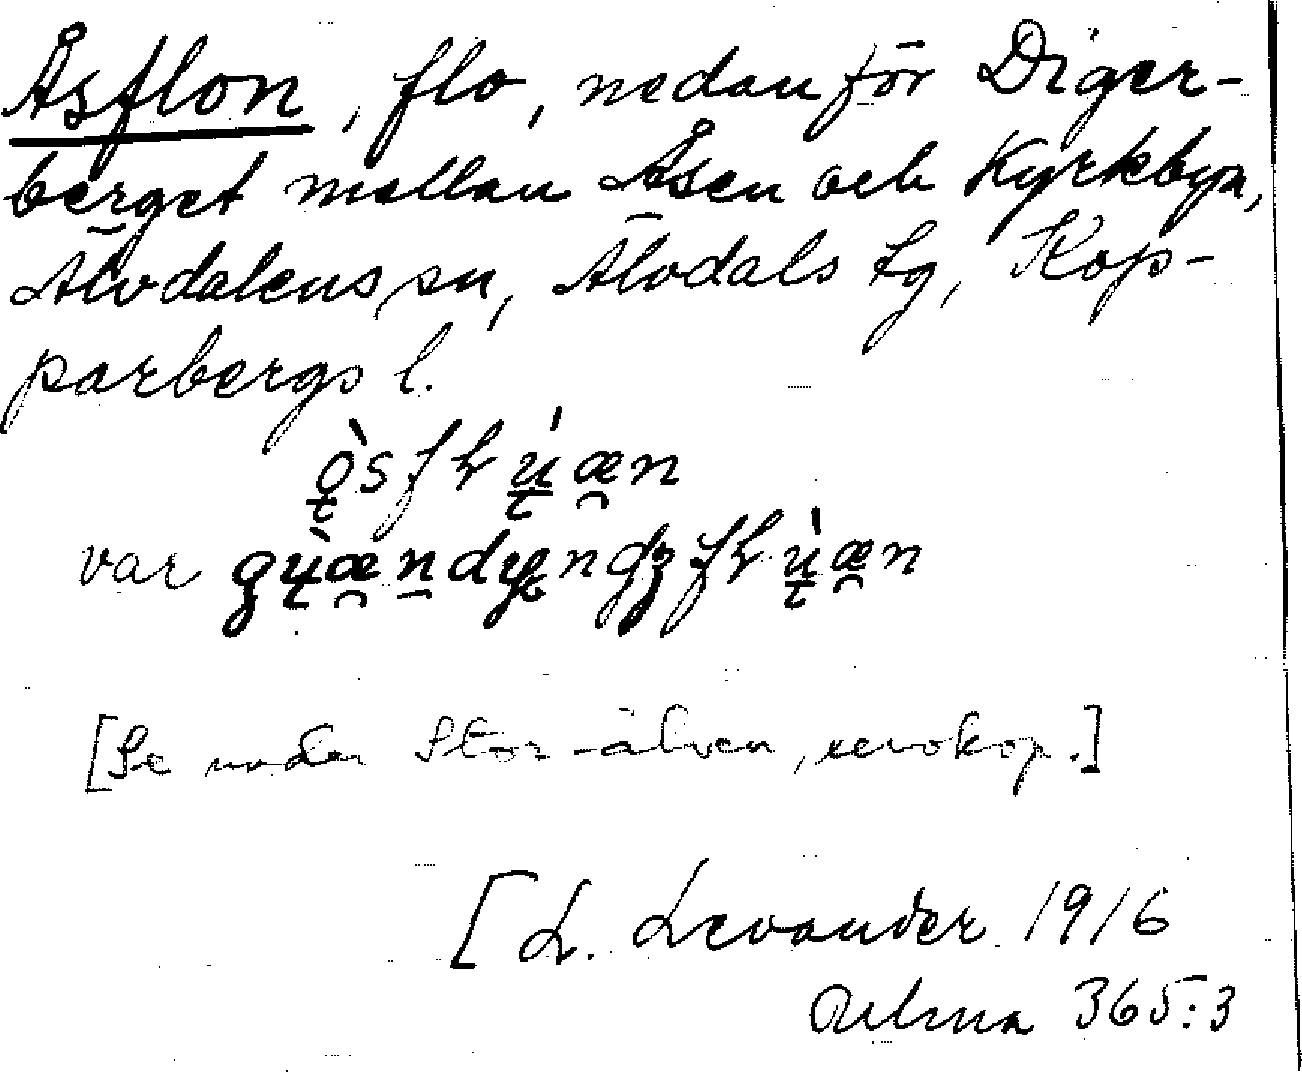 Åsflon, flo, nedanför Diger-
berget mellan Åsen och Kyrkbyn,
Älvdalens sn, Älvdals tg, Kop-
parbergs l.
var
[Se under Stor-älven, xerokop.]
[L. Levander 1916
Ulma 365:3